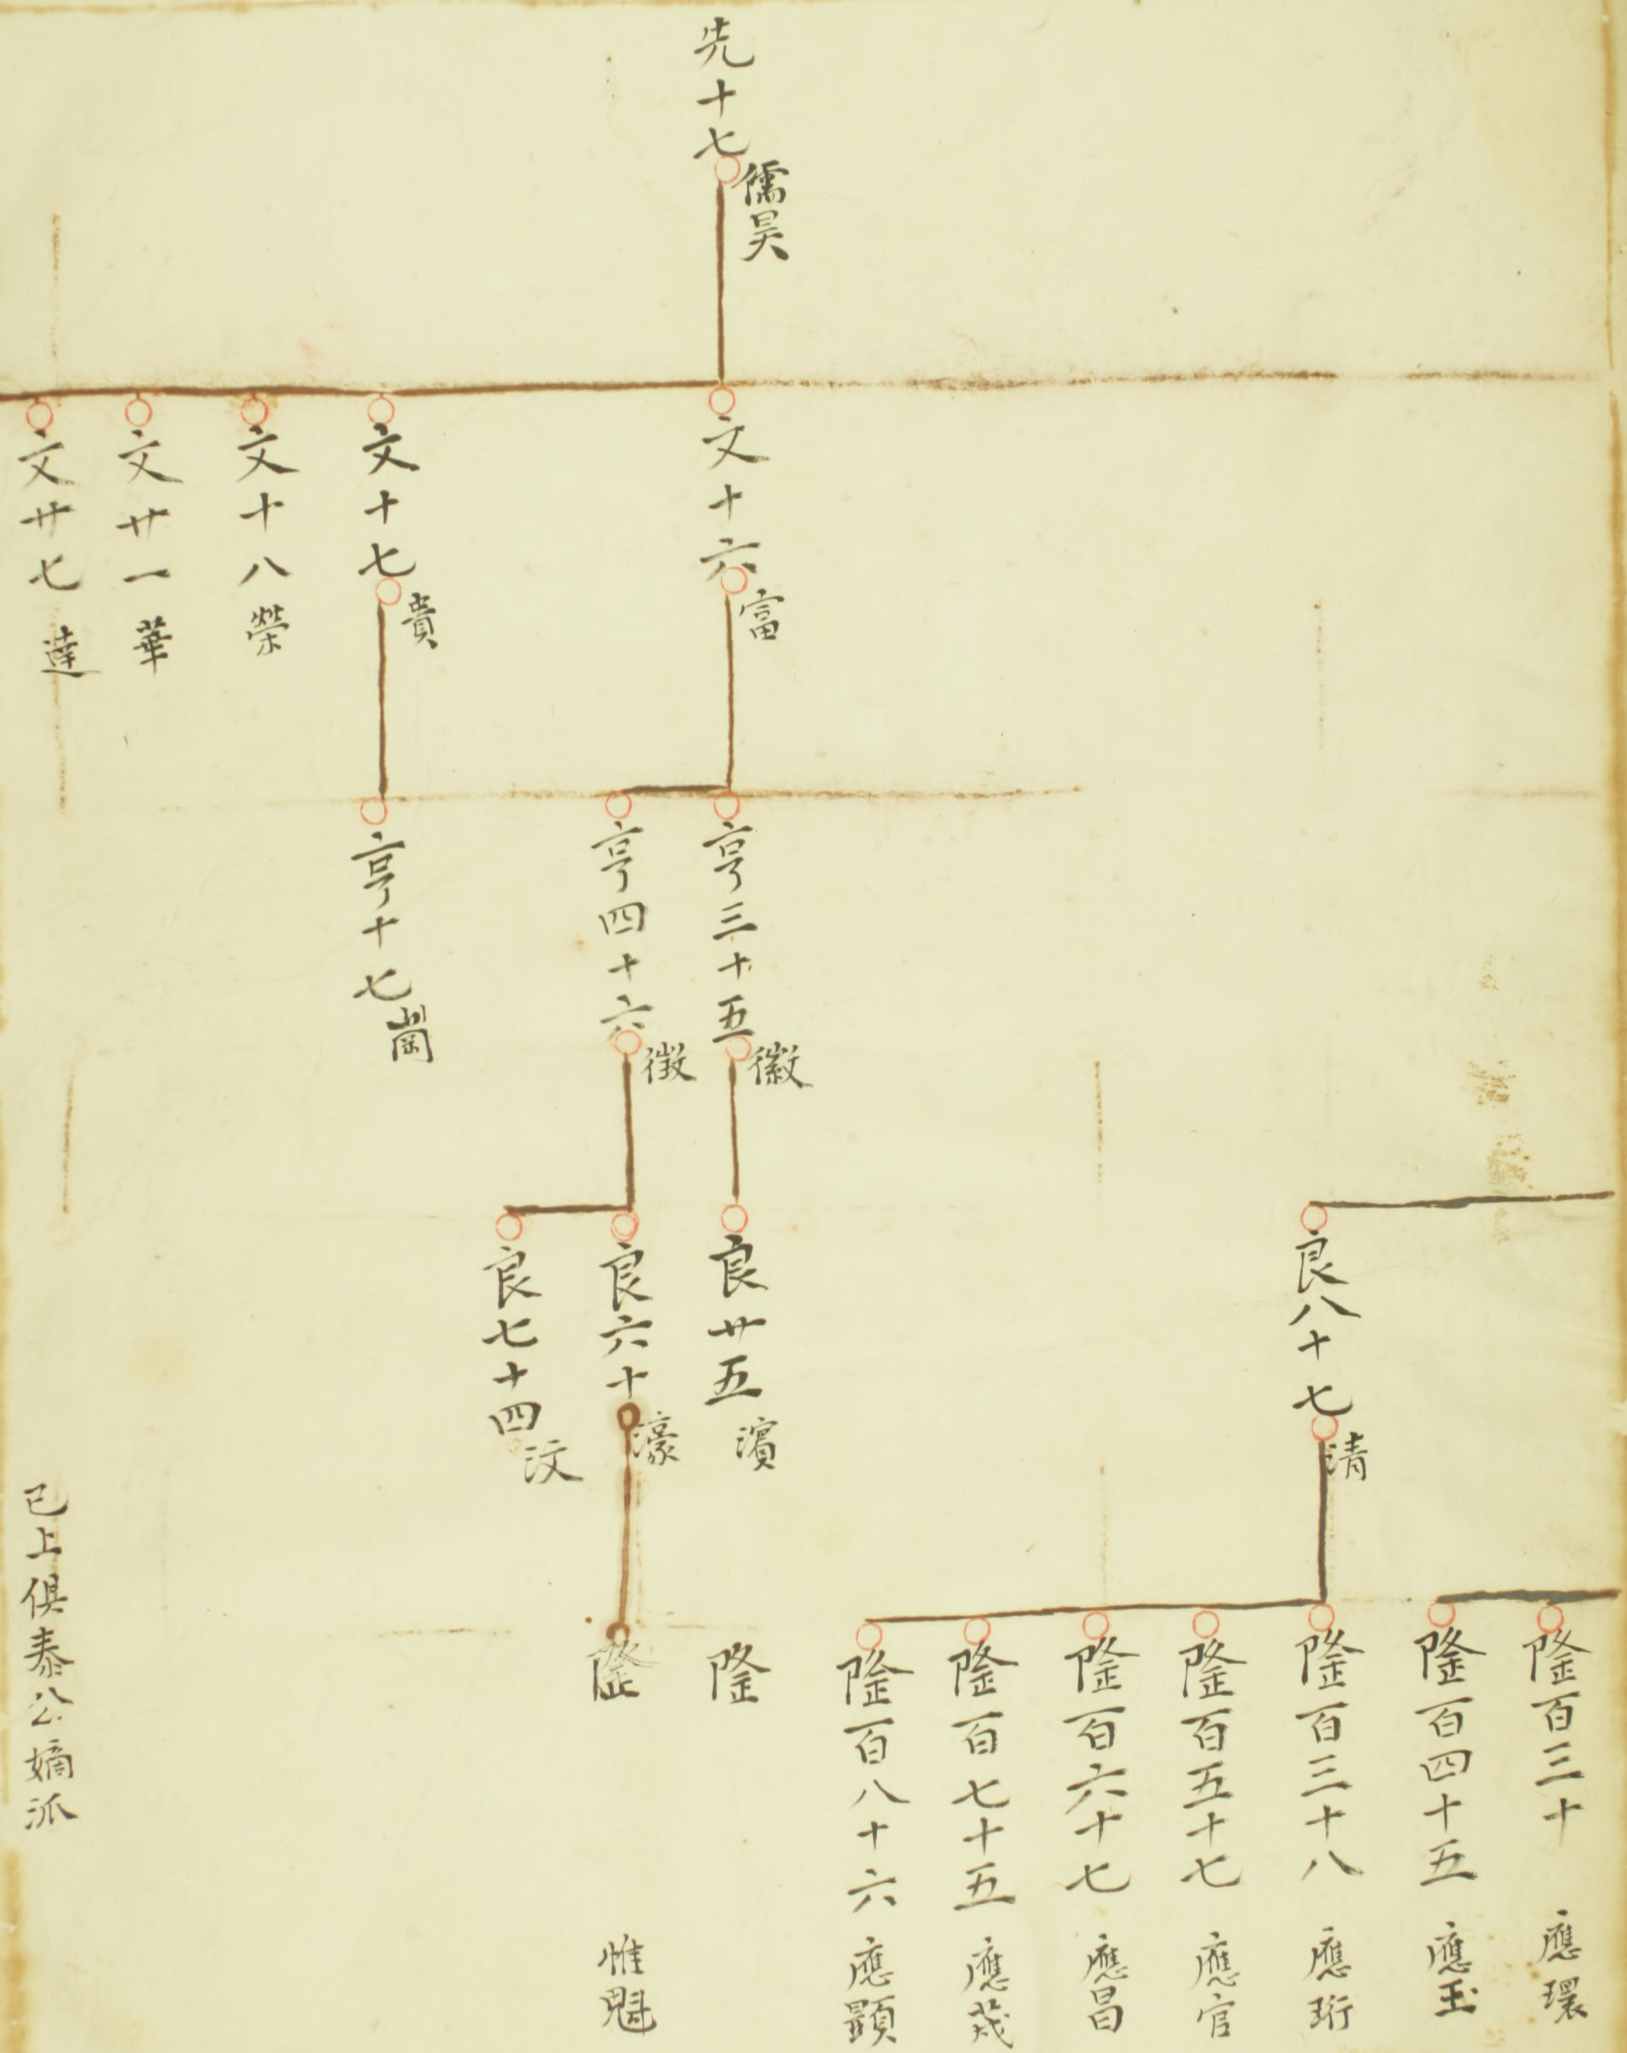 先十七
儒昊
文十六
富
文十七
貴
文十八
榮
文廿一
華
文廿七
達
亨三十五
徽
亨四十六
徵
亨十七
崗
良八十七
清
良廿五
濵
良六十
濠
良七十四
汶
隆百三十
應環
隆百四十五
應玉
隆百三十八
應珩
隆百五十七
應官
隆百六十七
應昌
隆百七十五
應茂
隆百八十六
應顯
隆
隆
惟魁
已上俱泰公嫡派